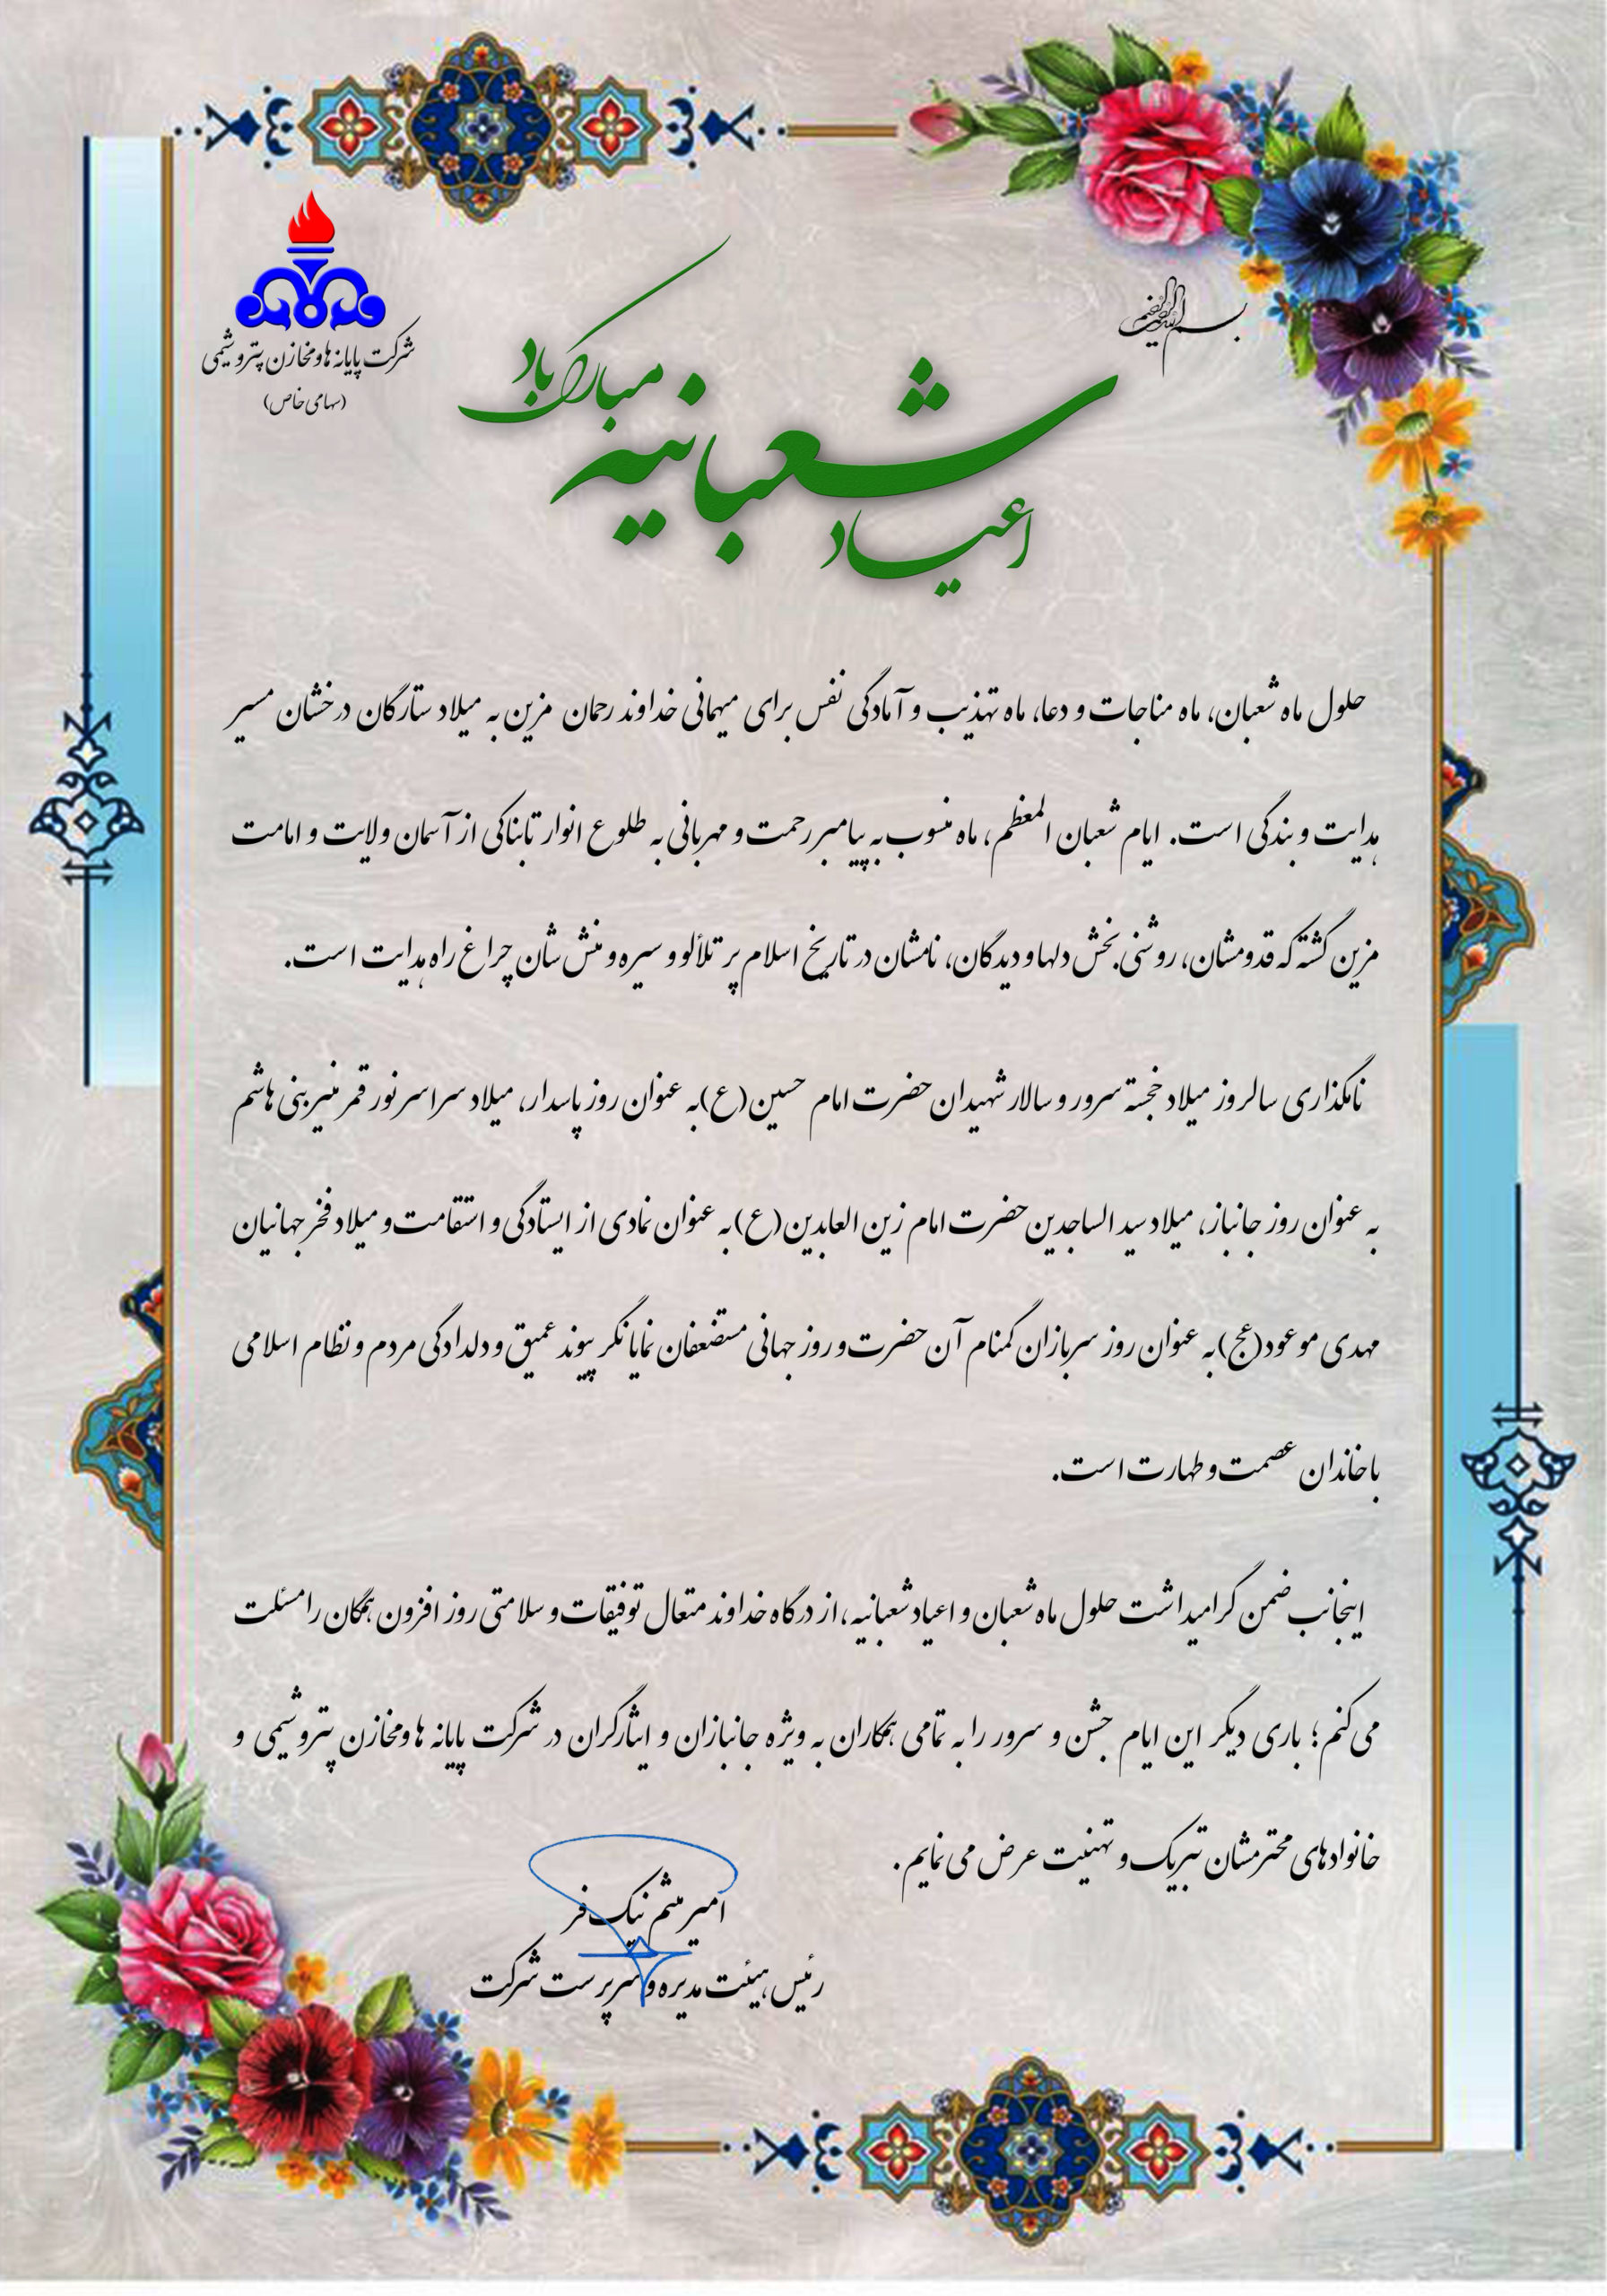 بسم الله الرحمن الرحیم
شرکت پایانه ها و مخازن پتروشیمی
(سهامی خاص)
اعیاد شعبانیه مبارک باد
حلول ماه شعبان، ماه مناجات و دعا، ماه تهذیب و آمادگی نفس برای میهمانی خداوند رحمان مزین به میلاد ستارگان درخشان مسیر
هدایت و بندگی است. ایام شعبان المعظم، ماه منسوب به پیامبر رحمت و مهربانی به طلوع انوار تابناکی از آسمان ولایت و امامت
مزین گشته که قدومشان، روشنی بخش دلها و دیدگان، نامشان در تاریخ اسلام پر تلألو و سیره و منش شان چراغ راه هدایت است.
نامگذاری سالروز میلاد خجسته سرور و سالار شهیدان حضرت امام حسین(ع)به عنوان روز پاسدار، میلاد سراسر نور قمر منیر بنی هاشم
به عنوان روز جانباز، میلاد سید الساجدین حضرت امام زین العابدین(ع)به عنوان نمادی از ایستادگی و استقامت و میلاد فخر جهانیان
مهدی موعود(عج)به عنوان روز سربازان گمنام آن حضرت و روز جهانی مستضعفان نمایانگر پیوند عمیق و دلدادگی مردم و نظام اسلامی
با خاندان عصمت و طهارت است.
اینجانب ضمن گرامیداشت حلول ماه شعبان و اعیاد شعبانیه، از درگاه خداوند متعال توفیقات و سلامتی روز افزون همگان را مسئلت
می کنم؛ باری دیگر این ایام جشن و سرور را به تمامی همکاران به ویژه جانبازان و ایثارگران در شرکت پایانه ها و مخازن پتروشیمی و
خانوادهای محترمشان تبریک و تهنیت عرض می نمایم.
امیر میثم نیک فر
رئیس هیئت مدیره و سرپرست شرکت